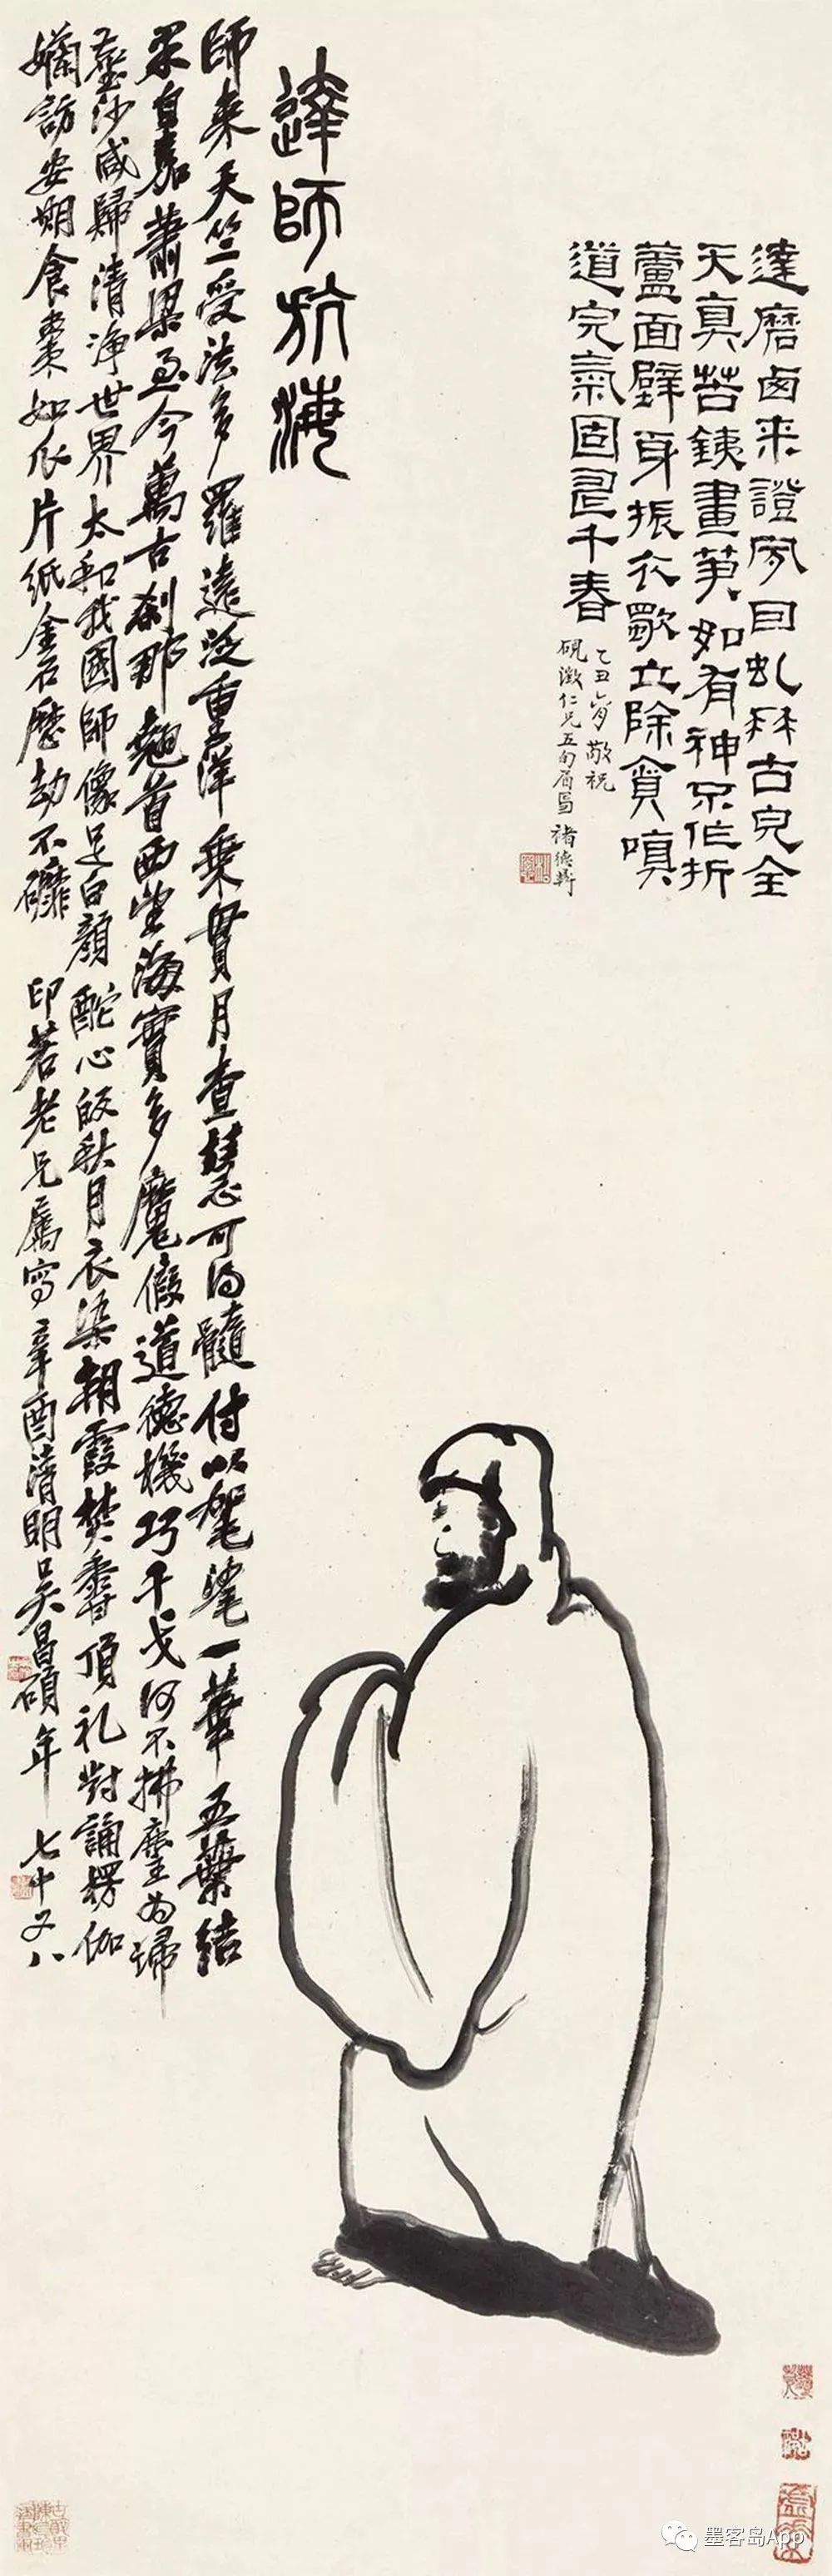 達磨西来證夙因虬髯古皃全
天真苦鐵畫筆如有神不作折
蘆面壁身振衣歇立除貪嗔
道完氣固是千春
乙丑 敬祝
硯澂仁兄五旬 褚德彝
達師航海
師来天竺受法多羅遠泛重洋乗貫月查慧可得髓付以袈裟一華五葉結
果自嘉蕭梁至今萬古刹那翹首西望海實多魔假道德機巧干戈何不拂塵為掃
蟲沙咸歸清浄世界太和我國師像是白顏酡心皎秋月衣染朝霞焚香頂礼對誦楞伽
訪安期食棗如瓜片紙金石歷劫不礳 印若老兄屬寫辛酉清明吴昌碩年七十又八
墨客岛App